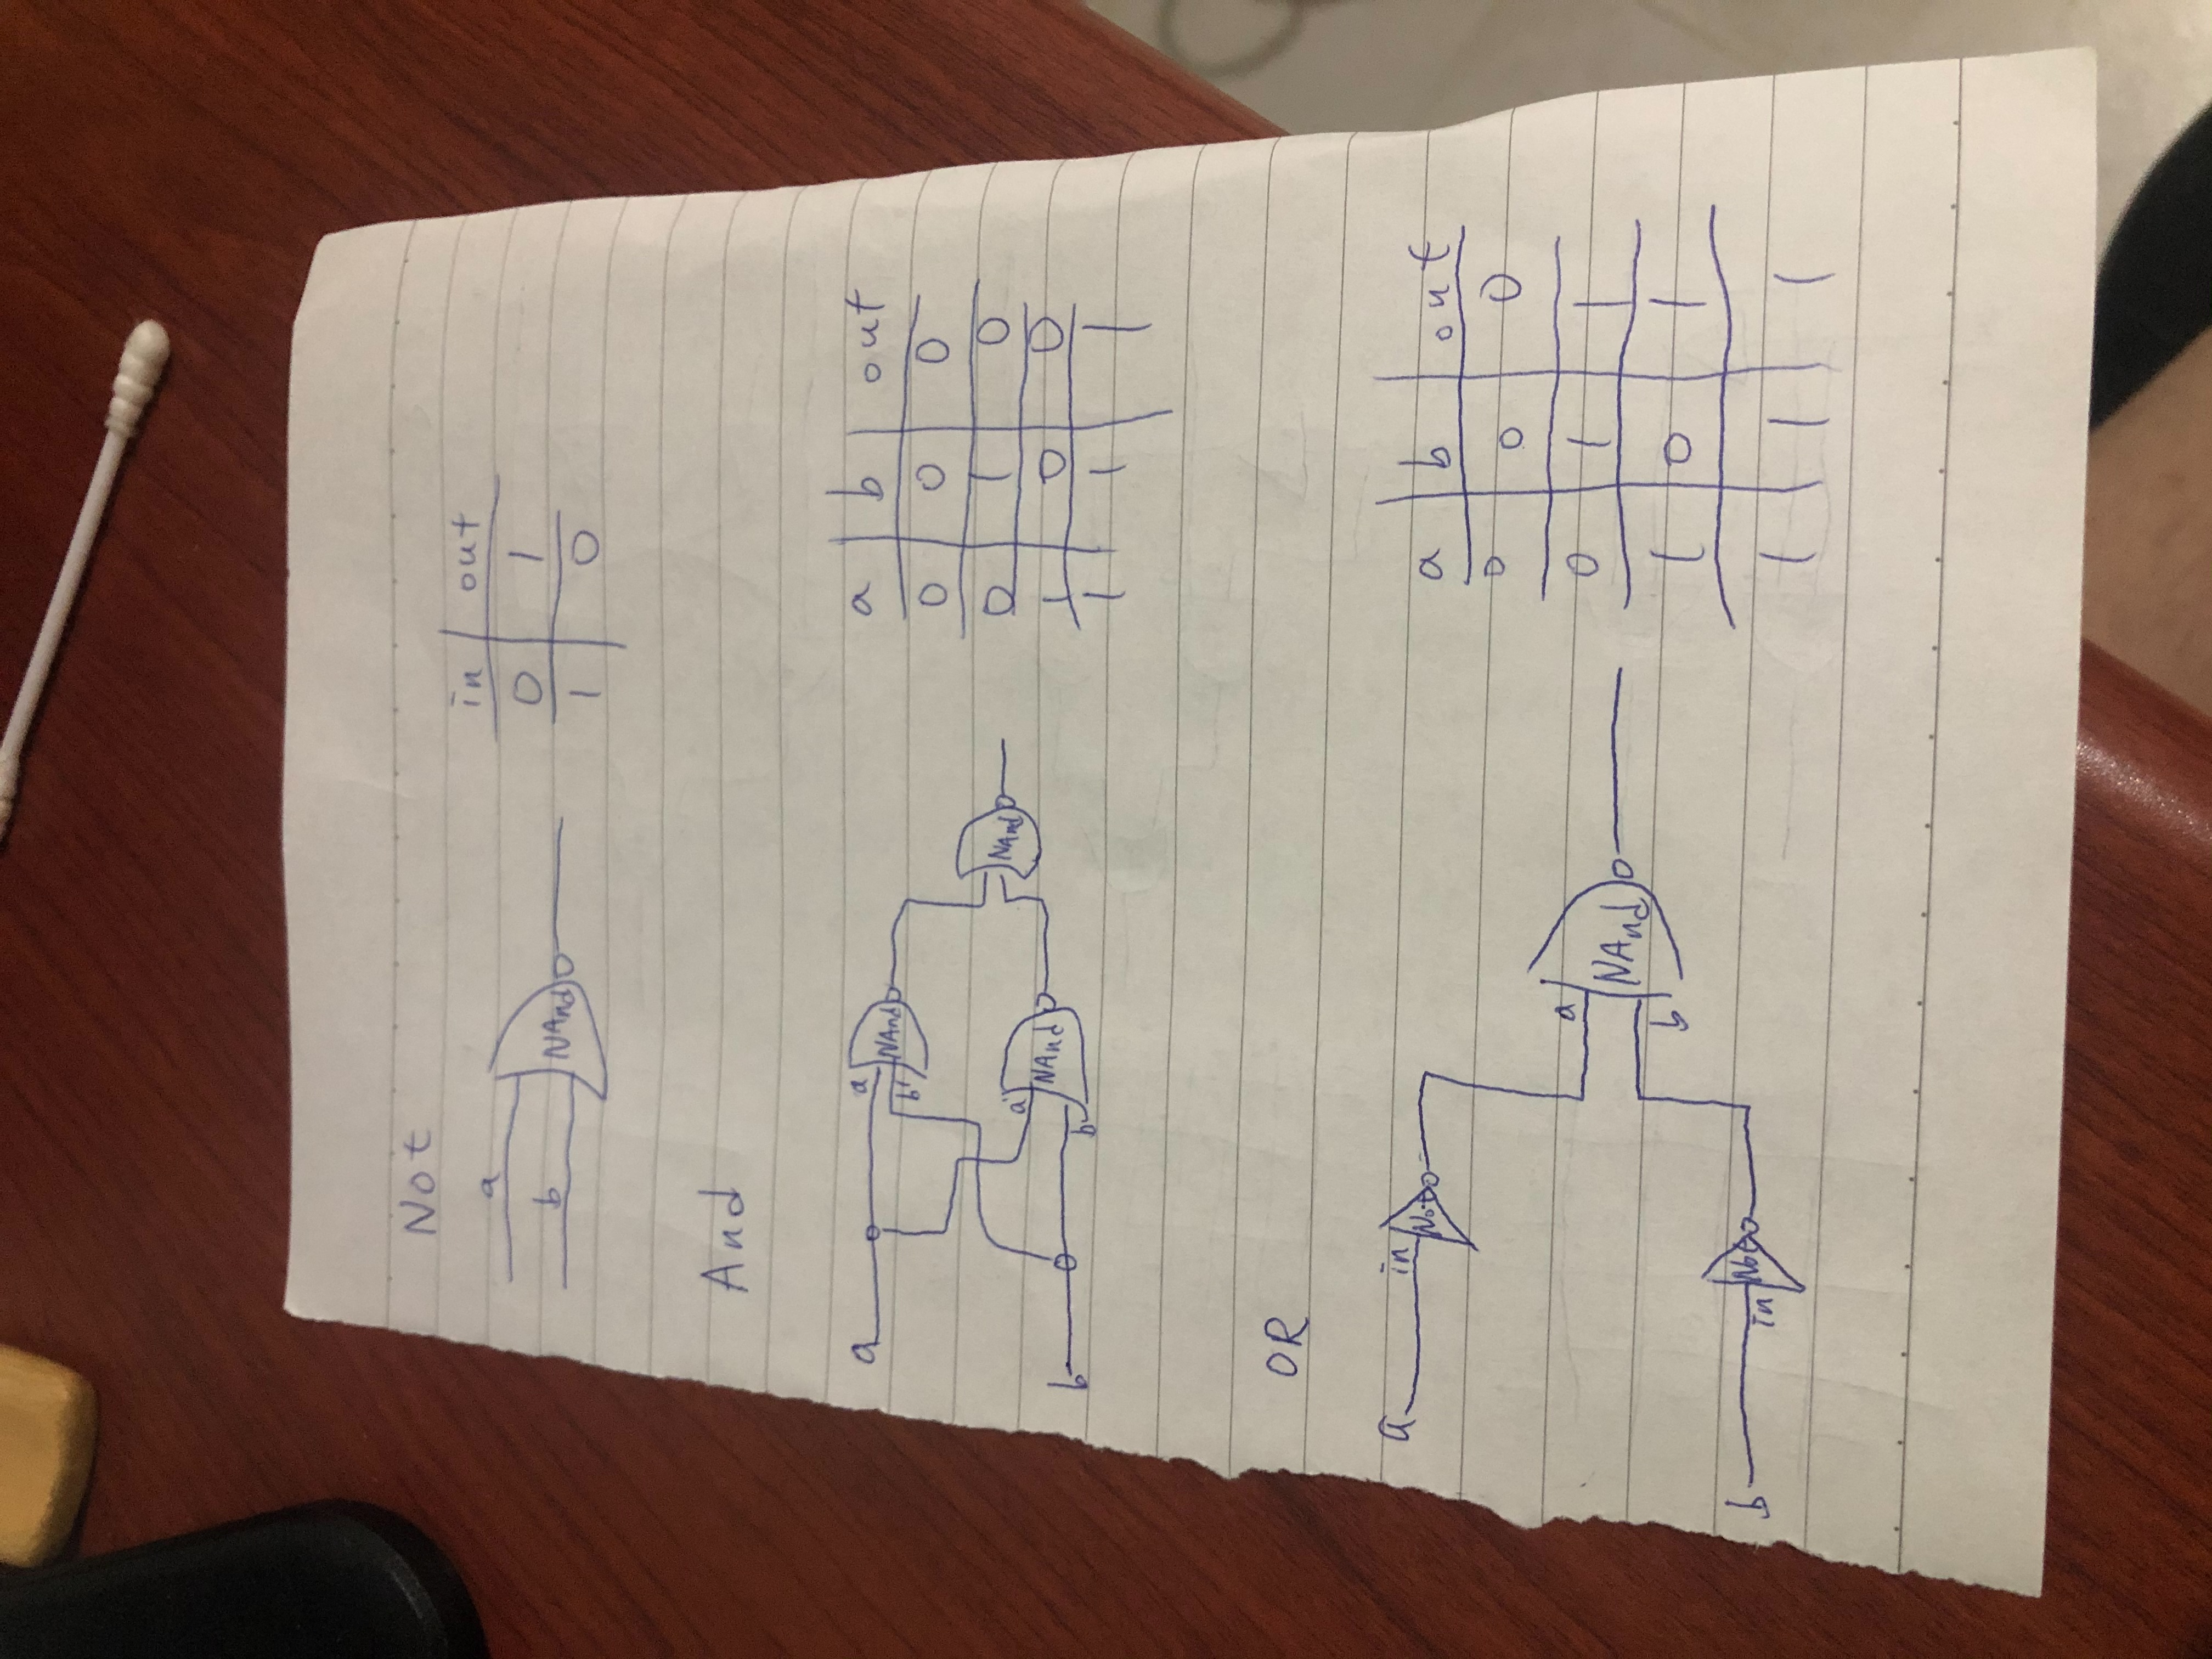 Not
a
b
NAnd
in out
0 1
1 0
And
a a NAnd
b'
NAnd
a NAnd
b b
a b out
0 0 0
0 1 0
1 0 0
1 1 1
OR
a in Not
a NAnd
b
b in Not
a b out
0 0 0
0 1 1
1 0 1
1 1 1